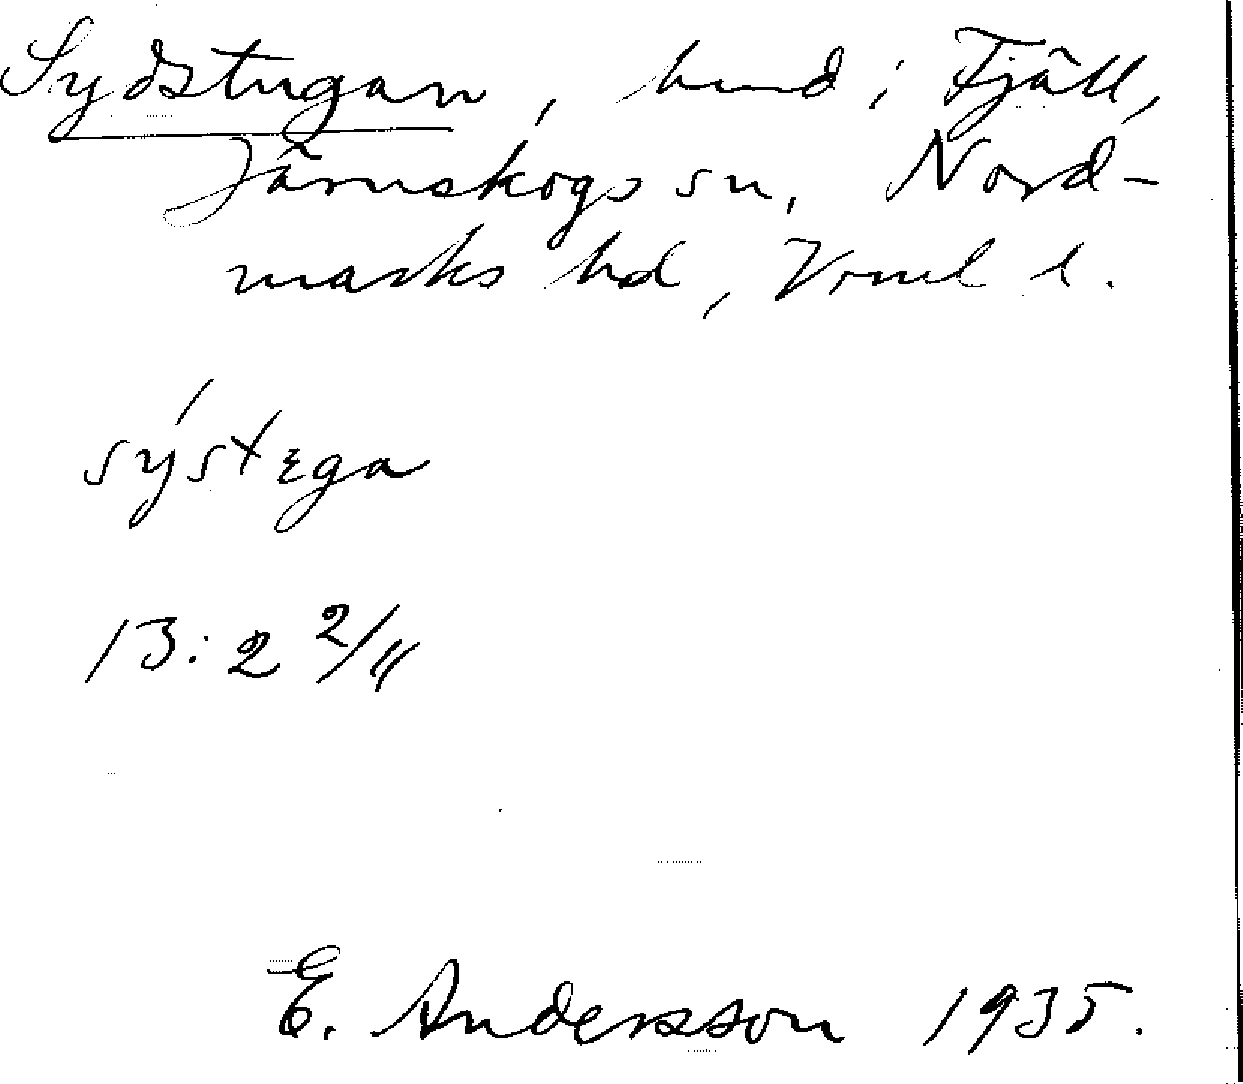 Sydstugan, hmd i Fjäll,
Järnskogs sn, Nord-
marks hd, Vrml l.
sýstɛga
13:2 2/11
E. Andersson 1935.